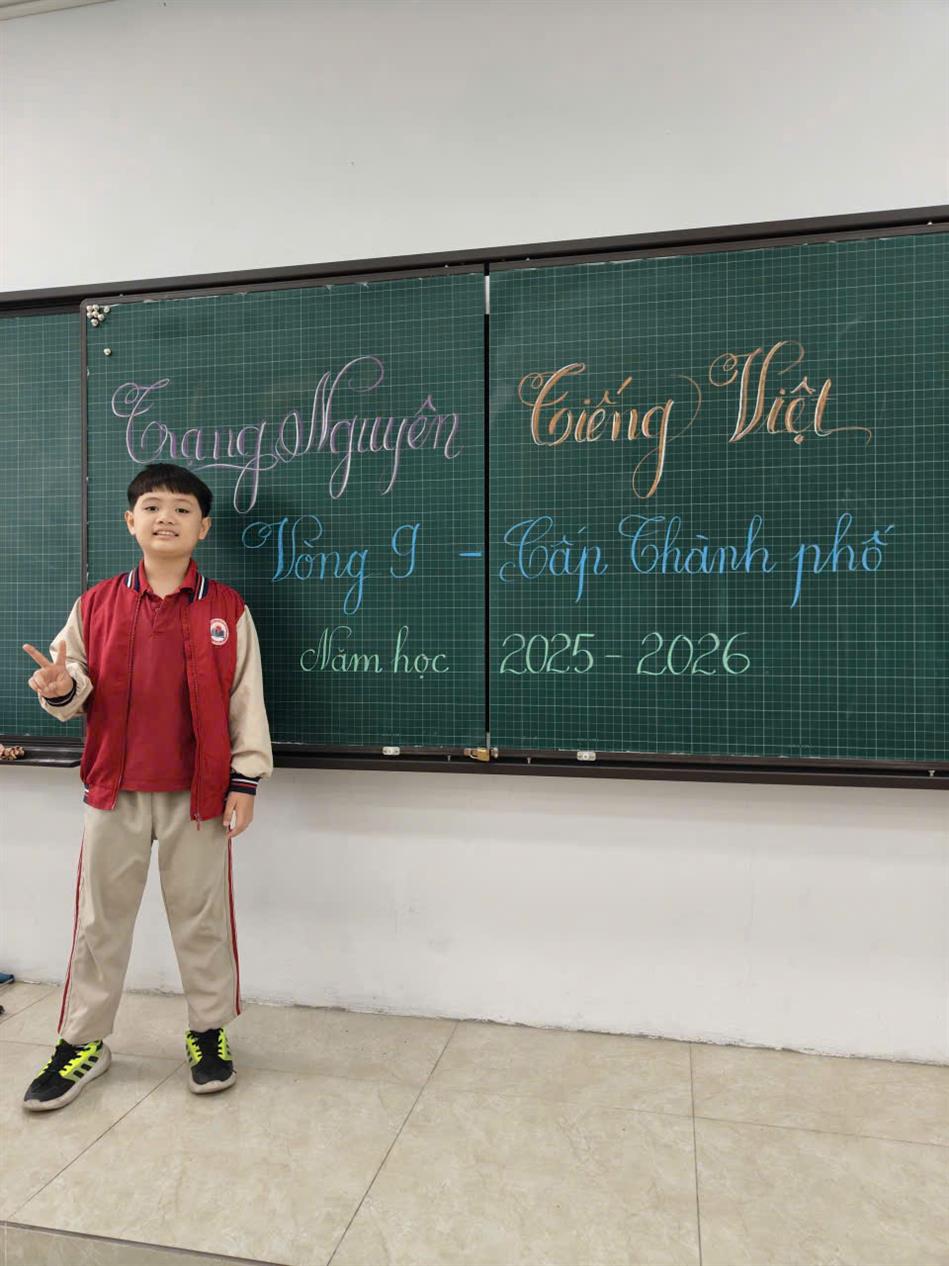 Trạng Nguyên Tiếng Việt
Vòng 9 - Cấp Thành phố
Năm học 2025 - 2026